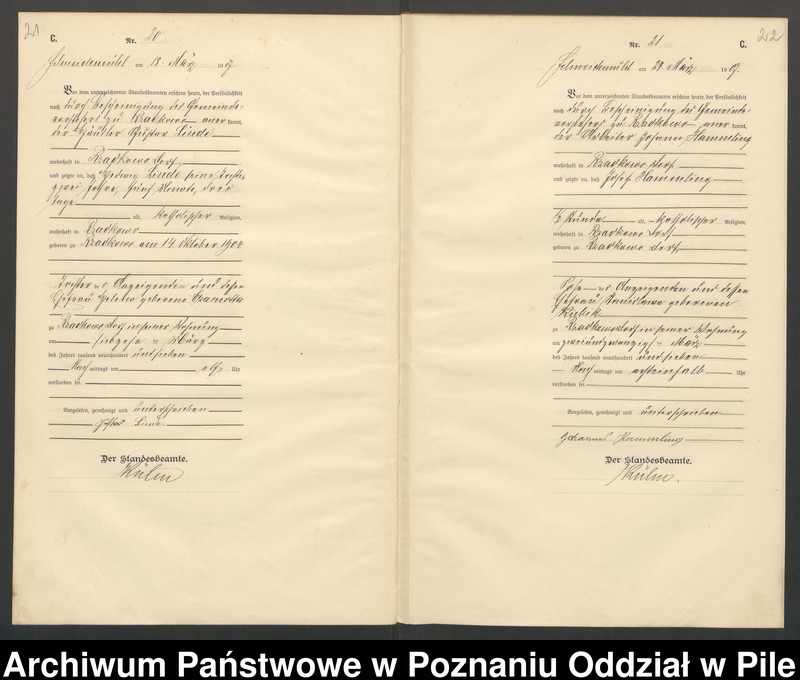 C.
Nr. 20
Schneidemühl am 18. März 1907.
Vor dem unterzeichneten Standesbeamten erschien heute, der Persönlichkeit
nach durch Bescheinigung des Gemeinde-
vorstehers zu Radkowo anerkannt,
der Häusler Gustav Linde
wohnhaft in
und zeigte an, daß Hedwig Linde seine Tochter
zwei Jahre, fünf Monate, drei
Tage
alt, katholischer Religion,
wohnhaft in
geboren zu am 14. Oktober 1904
Tochter des Anzeigenden und dessen
Ehefrau geborene
zu in seiner Wohnung
am siebzehn ten März
des Jahres tausend neunhundert und sieben
Nachmittags um Uhr
verstorben sei
Vorgelesen, genehmigt und unterschrieben
Gustav Linde
Der Standesbeamte.
Kühn
Nr. 21
C.
212
Schneidemühl am März 1907.
Vor dem unterzeichneten Standesbeamten erschien heute, der Persönlichkeit
nach durch Bescheinigung des Gemeinde-
vorstehers zu anerkannt,
der Arbeiter Johann Hammling
wohnhaft in Dorf
und zeigte an, daß Josef Hammling
1/2 Stunde alt, katholischer Religion,
wohnhaft in Dorf
geboren zu Dorf
Sohn des Anzeigenden und dessen
Ehefrau Stanislawa geborenen
Kubik
zu in seiner Wohnung
am zweiundzwanzigsten März
des Jahres tausend neunhundert und sieben
Nachmittags um achteinhalb Uhr
verstorben sei
Vorgelesen, genehmigt und unterschrieben
Johannes Hammling
Der Standesbeamte.
Kühn.
Archiwum Państwowe w Poznaniu Oddział w Pile